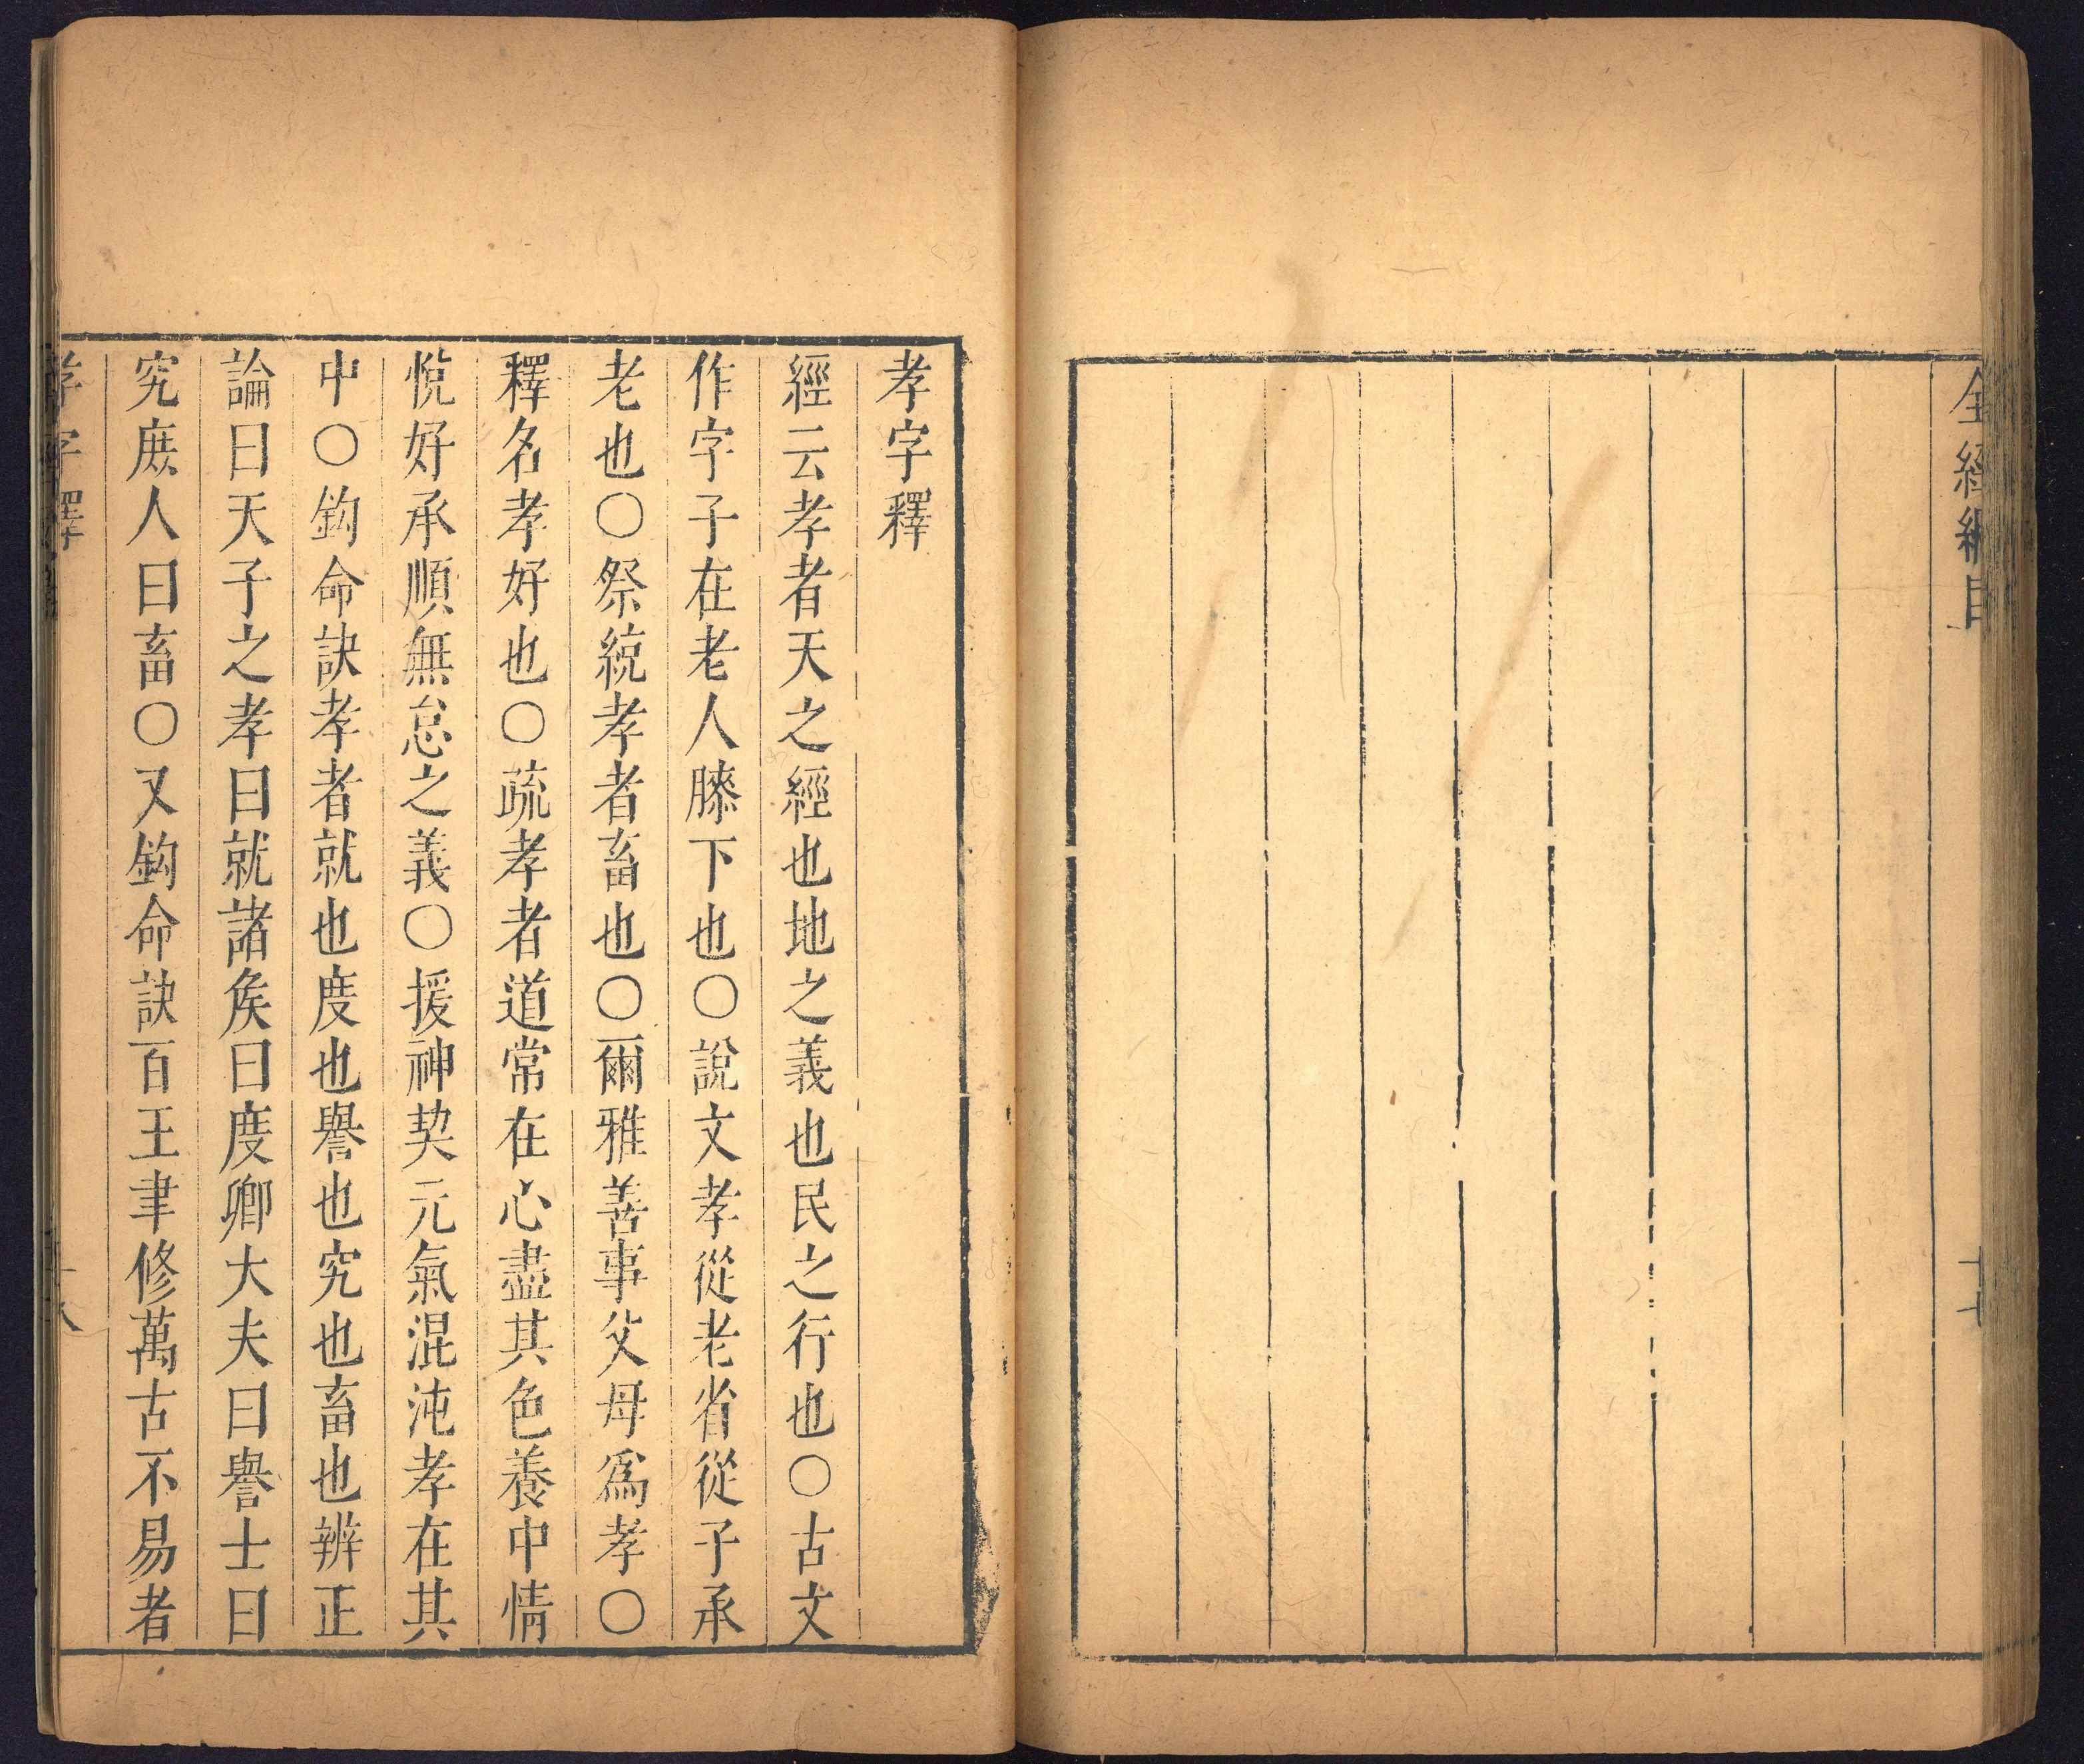 全經綱目
十七
孝字釋
經云孝者天之經也地之義也民之行也○古文
作字子在老人膝下也○說文孝從老省從子承
老也○祭統孝者畜也○爾雅善事父母爲孝○
釋名孝好也○疏孝者道常在心盡其色養中情
悅好承順無怠之義○援神契元氣混沌孝在其
中○鉤命訣孝者就也度也譽也究也畜也辨正
論曰天子之孝曰就諸矦曰度卿大夫曰譽士曰
究庶人曰畜○又鉤命訣百王聿修萬古不易者
孝字釋
十八